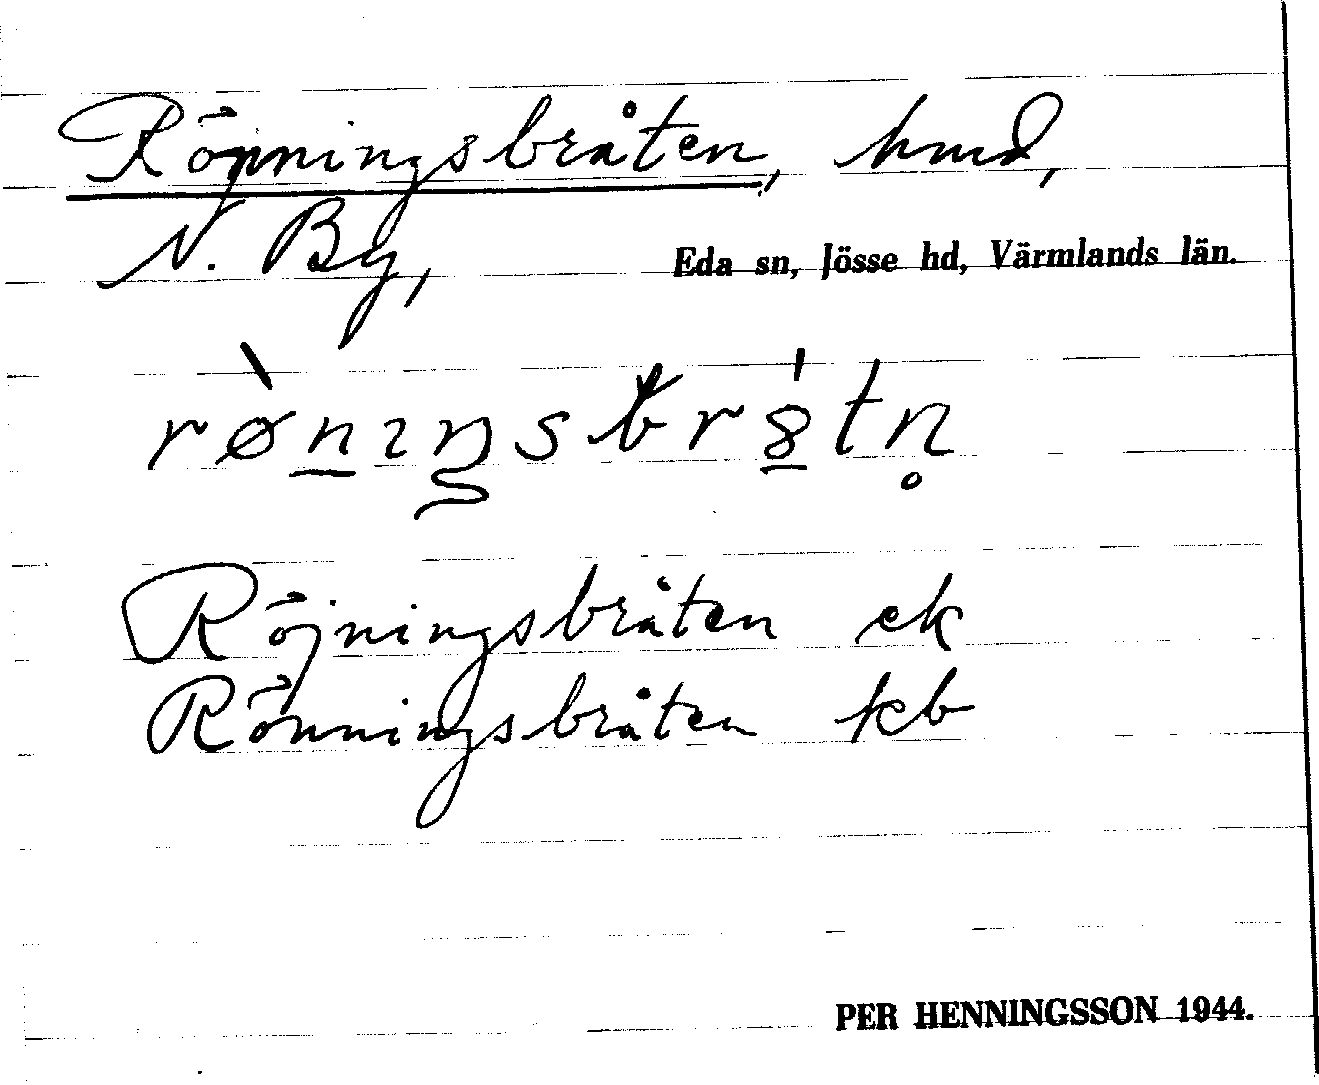 Rönningsbråten, hmd,
N. By, Eda sn, Jösse hd, Värmlands län.
rø̀nıŋsbr8́tn̥
Röjningsbråten ek
Rönningsbråten kb
PER HENNINGSSON 1944.